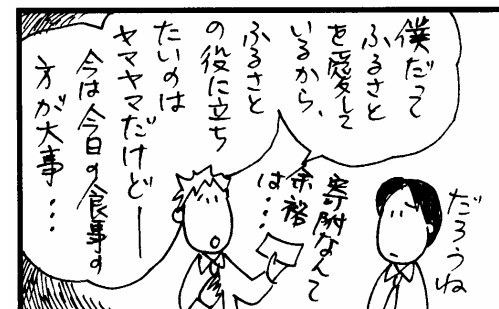 僕だって
ふるさと
を愛して
いるから、
ふるさと
の役に立ち
たいのは
ヤマヤマだけどー
今は今日の食事の
方が大事…
寄附なんて
余裕
は…
だろうね